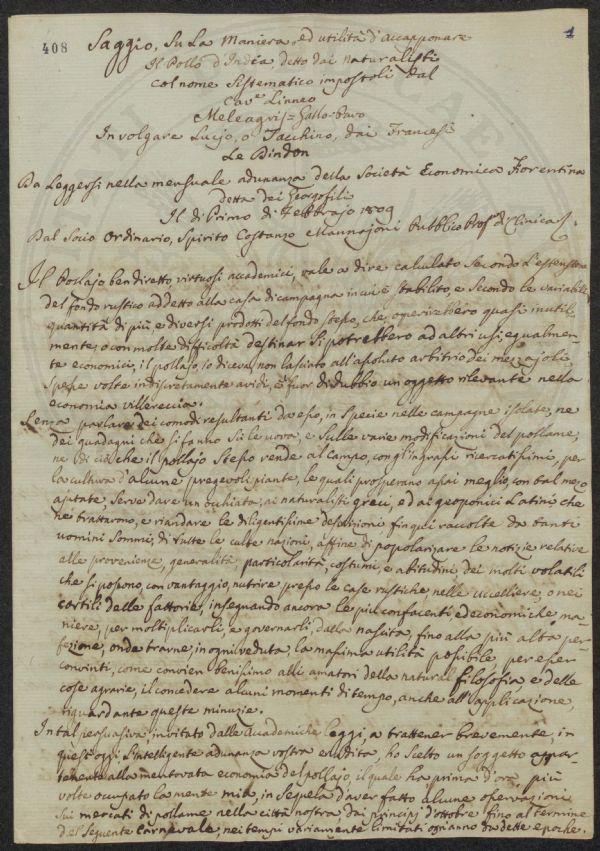 408
1
Saggio, Su La Maniera, ed utilità d'accapponare
Il Pollo d'India, detto dai naturalisti
col nome Sistematico impostoli dal
Cav.e Linneo
Meleagris = Gallo-Pavo
In volgare Lucio, o Tacchino, dai Francesi
Le Dindon
Da Leggersi nella mensuale adunanza della Società Economica Fiorentina
detta dei Georgofili
Il di Primo di Febbrajo 1809
Dal Socio Ordinario, Spirito Costanzo Mannajoni Pubblico Prof. di Clinica
Il Pollajo ben diretto, virtuosi accademici, vale a dire calcolato Secondo l'estensione
del fondo rustico addetto alla casa di campagna in cui è stabilito e Secondo le variabili
quantità di più e diversi prodotti del fondo stesso, che, o perirebbero quasi inutil-
mente, o con molte difficoltà destinar Si potrebbero ad altri usi, egualmen-
te economici, il pollajo, io diceva, non lasciato all'assoluto arbitrio dei mezzajoli,
Spesse volte indiscretamente avidi, è fuor di dubbio un oggetto rilevante nella
economia villereccia.
Senza parlare dei comodi resultanti da esso, in Specie nelle campagne isolate, ne
dei guadagni che si fanno Su le uova, e Sulle varie modificazioni del pollame,
ne di ciò che il pollajo Stesso rende al campo, con gl'ingrassi ricercatissimi, per
la cultura d'alcune pregevoli piante, le quali prosperano assai meglio, con tal mezzo
ajutate, Serve dare un occhiata, ai naturalisti greci, ed ai geoponici Latini che
ne trattarono, e riandare le diligentissime descrizioni fin qui raccolte da tanti
uomini Sommi, di tutte le culte nazioni, affine di popolarizare le notizie relative
alle provenienze, generalità, particolarità, costumi, e abitudini dei molti volatili
che Si possono, con vantaggio, nutrire presso le case rustiche, nelle uccelliere, o nei
cortili delle fattorie, insegnando ancora le più confacenti, ed economiche ma-
niere, per moltiplicarli, e governarli, dalla nascita, fino alla più alta per-
fezione, onde trarne, in ogni veduta, la massima utilità possibile, per esser
convinti, come convien benissimo alli amatori della natural filosofia, e delle
cose agrarie, il concedere alcuni momenti di tempo, anche all'applicazione,
riguardante queste minuzie.
In tal persuasiva, invitato dalle Accademiche leggi, a trattener brevemente, in
quest'oggi l'intelligente adunanza vostra erudita, ho Scelto un Soggetto appar-
tenente alla mentovata economia del pollajo, il quale ha prima d'ora più
volte occupato la mente mia, in Sequela d'aver fatto alcune osservazioni
Sui mercati di pollame nella città nostra dai principj d'ottobre fino al termine
del Seguente Carnevale, nei tempi variamente limitati ogni anno da dette epoche.